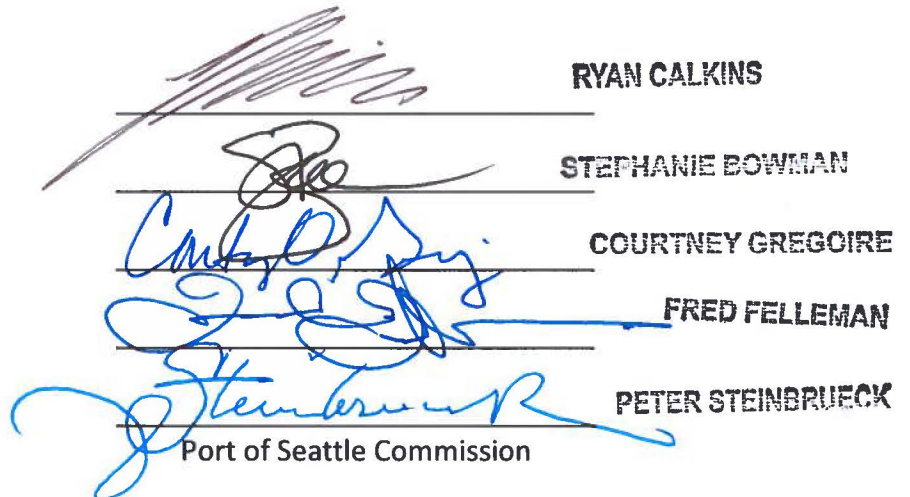 RYAN CALKINS
STEPHANIE BOWMAN
COURTNEY GREGOIRE
FRED FELLEMAN
Steinbrueck PETER STEINBRUECK
Port of Seattle Commission